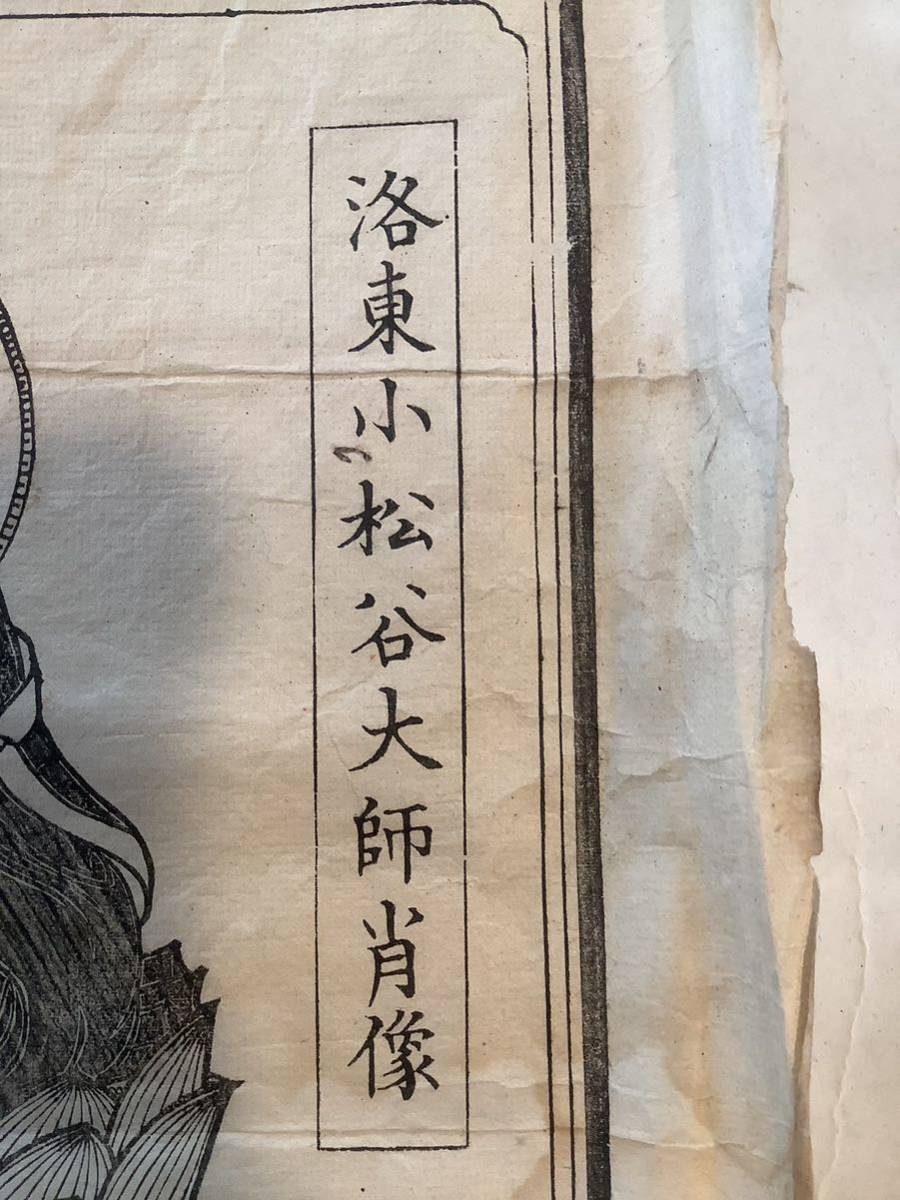 洛東小松谷大師肖像